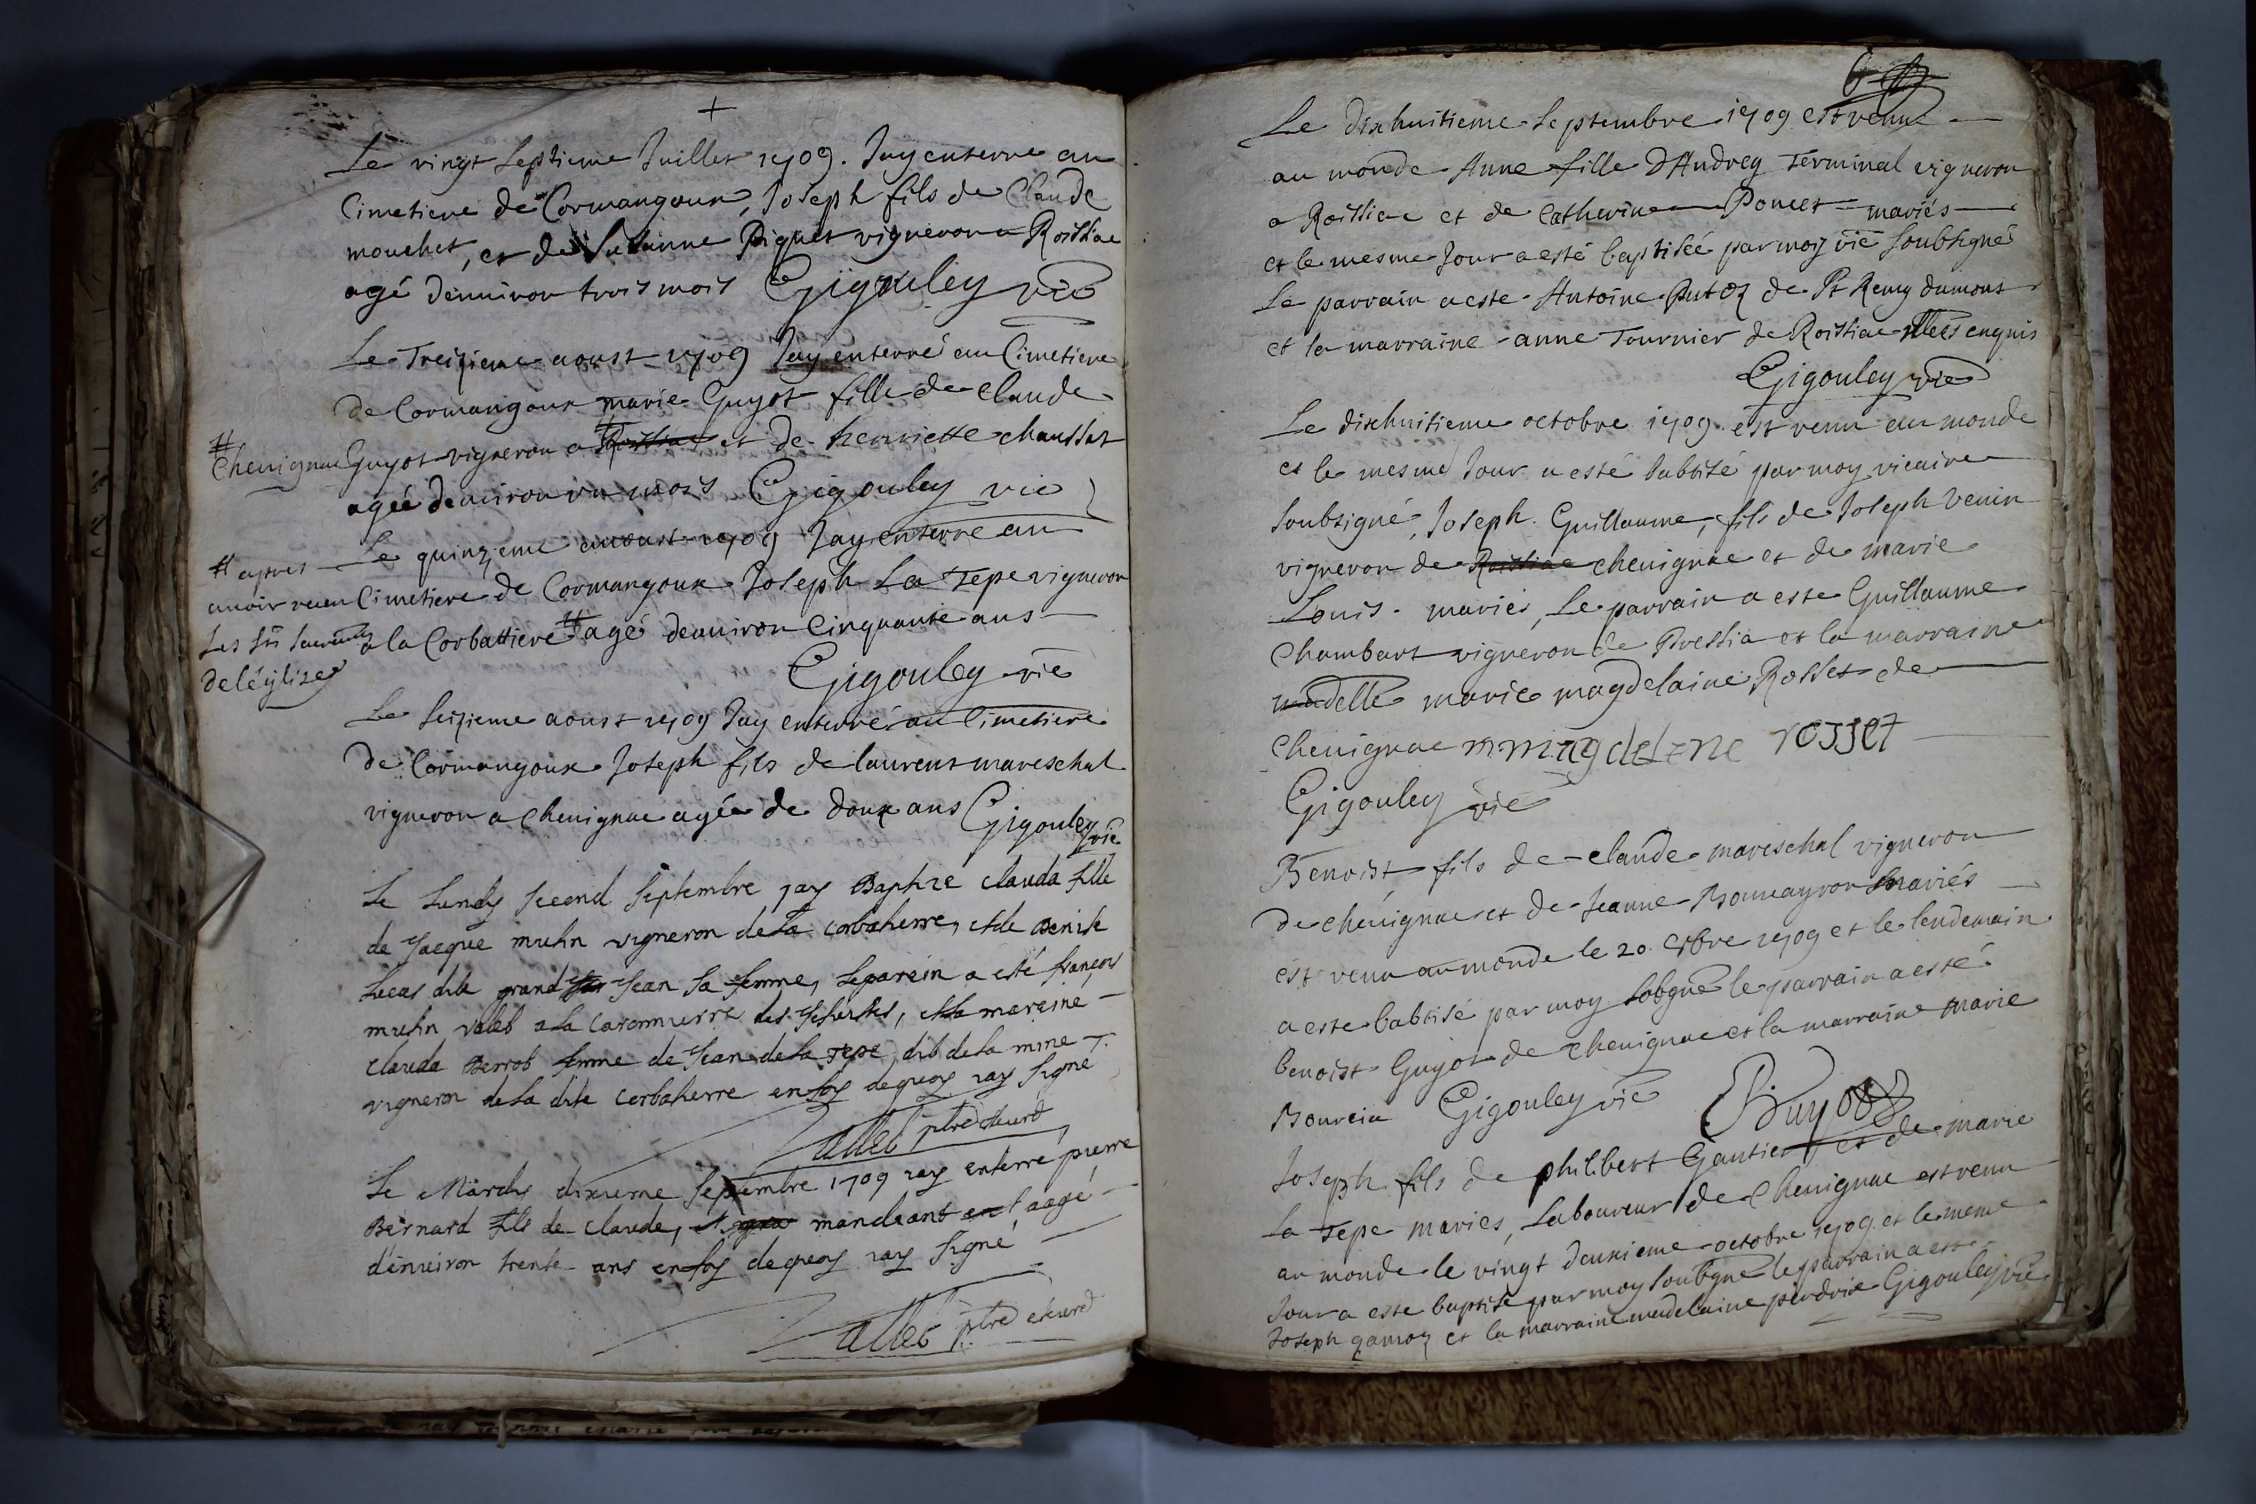 +
Le vingt septieme Juillet 1709. Jay enterre au
Cimetiere de Cormangoux, Joseph fils de Claude
mouchet, et de Susanne Piquet vigneron a Roissiac
agé denuiron trois mois Gigouley vic
Le Treizieme aoust 1709 Jay enterré au Cimetiere
de Cormangoux marie Guyot fille de Claude
# Chenignac Guyot vigneron a Roissiac # et de henriette chaussat
agéé denuiron un mois Gigouley vic
Le quinzieme aoust 1709 Jay enterre au
Cimetiere de Cormangoux Joseph La Tepe vigneron
a la Corbattiere # agé denuiron Cinquante ans
# apres
auoir receu
Les sts sacrements
de léglize
Gigouley vic
Le seizieme aoust 1709 Jay enterré au Cimetiere
de Cormangoux Joseph fils de laurens mareschal
vigneron a Chenignac agée de doux ans Gigouley vic
Le Lundy second septembre jay Baptize clauda fille
de Jacque muhn vigneron de la corbatierre, et de Denise
Lucas dite grand Jean sa femme, le parein a esté françois
muhn valet a la des Jesuistes, et la mareine
clauda femme de Jean de la Tepe dit de la mine
vigneron de la dite corbatierre en foy de quoy jay signé
Vallet ptre et curé
Le Mardy dixieme septembre 1709 jay enterré pierre
Bernard fils de claude, mandiant aagé
d'énuiron trente ans en foy de quoy jay signé
Vallet ptre et curé
6
Le dixhuitieme septembre 1709 est venu
au monde Anne fille D'Andrey Terminal vigneron
a Roissiac et de Catherine Poncet mariés
et le mesme Jour a esté baptiséé par moy vic soubsigné
Le parrain a este Antoine Putoz de St Remy dumont
et la marraine anne Tournier de Roissiac illeres enquis
Gigouley vic
Le dixhuitieme octobre 1709 est venu au monde
et le mesme Jour a esté babtisé par moy vicaire
soubsigné, Joseph Guillaume, fils de Joseph Venin
vigneron de Roissiac chenignac et de marie
Louis mariés, Le parrain a este Guillaume
Chambart vigneron de Pressia et la marraine
madelle marie magdelaine Rosset de
Chenignac m magdelene rosset
Gigouley vic
Benoist fils de claude mareschal vigneron
de chenignac et de Jeanne mariés
est venu au monde le 20 1709 et le lendemain
a este babtisé par moy sobgné le parrain a esté
benoist Guyot de chenignac et la marraine marie
Bourcia Gigouley vic BGuyot
Joseph fils de philibert Gautier et de marie
la Tepe mariés, Laboureur de Chenignac est venu
au monde le vingt deuxieme octobre 1709 et le meme
Jour a este baptisé par moy soubgné le parrain a esté
Joseph gamoz et la marraine madelaine perdrix Gigouley vic